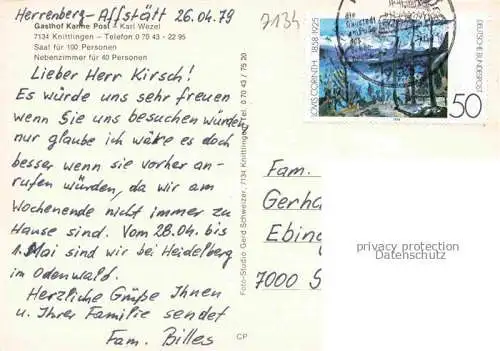 Herrenberg-Affstätt 26.04.79
Gasthof Kanne Post - Karl Wezel
7134 Knittlingen - Telefon 0 70 43 - 22 95
Saal für 100 Personen
Nebenzimmer für 40 Personen
Lieber Herr Kirsch!
Es würde uns sehr freuen
wenn Sie uns besuchen würden,
nur glaube ich wäre es doch
besser wenn sie vorher an-
rufen würden, da wir am
Wochenende nicht immer zu
Hause sind. Vom 28.04. bis
1. Mai sind wir bei Heidelberg
im Odenwald.
Herzliche Grüße Ihnen
u. Ihrer Familie sendet
Fam. Billes
Foto-Studio Gerd Schweizer, 7134 Knittlingen, Tel. 0 70 43 / 79 20
CP
7134
LOVIS CORINTH 1858-1925
DEUTSCHE BUNDESPOST
50
Fam.
Gerha
Ebing
7000 S
privacy protection
Datenschutz